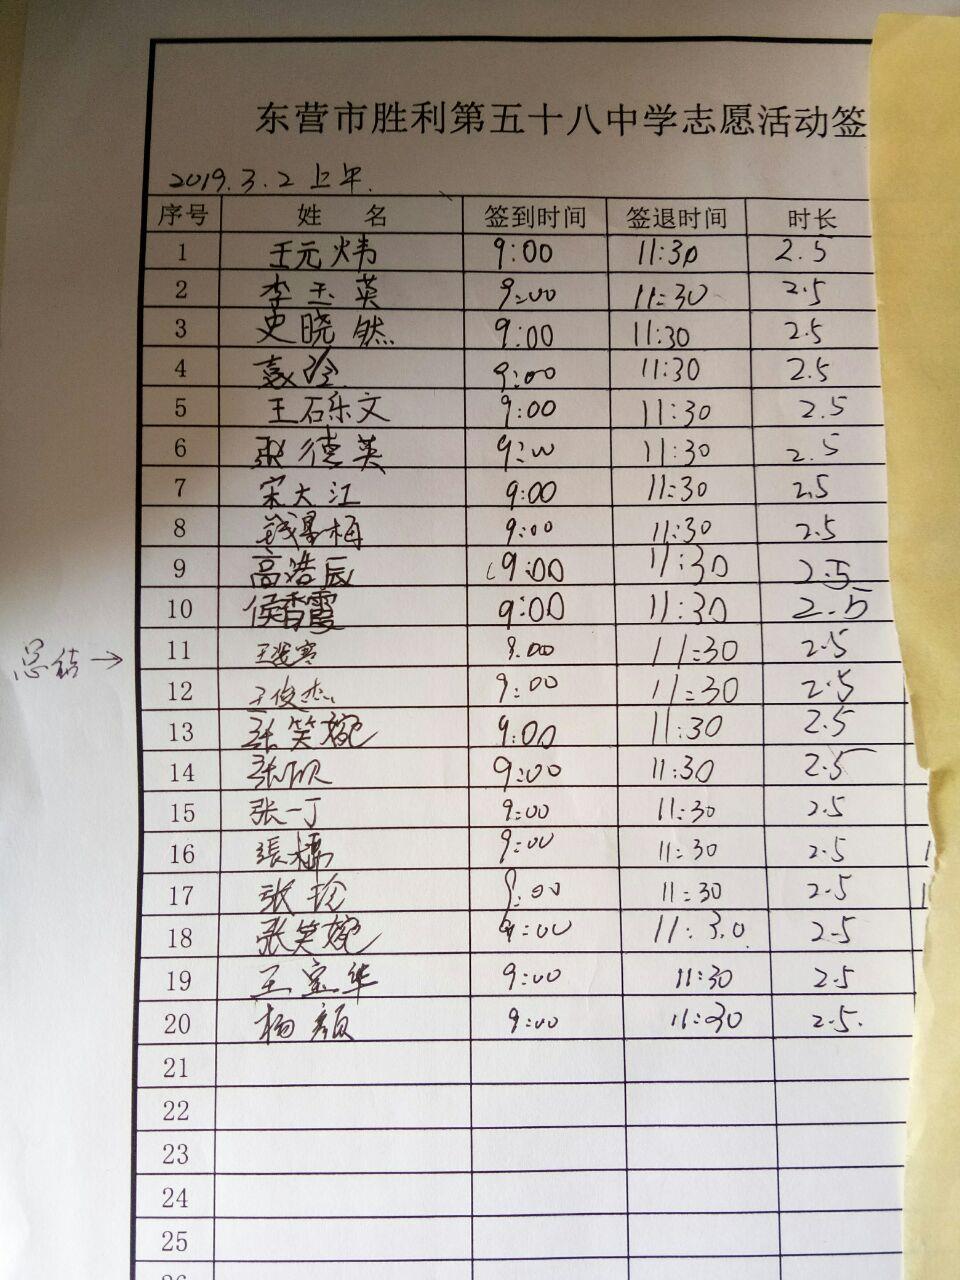 东营市胜利第五十八中学志愿活动签
2019.3.2 上午.
序号 姓 名 签到时间 签退时间 时长
1 王元炜 9:00 11:30 2.5
2 李玉英 9:00 11:30 2.5
3 史晓然 9:00 11:30 2.5
4 聂玲 9:00 11:30 2.5
5 王石乐文 9:00 11:30 2.5
6 张德英 9:00 11:30 2.5
7 宋大江 9:00 11:30 2.5
8 9:00 11:30 2.5
9 高浩辰 9:00 11:30 2.5
10 侯香霞 9:00 11:30 2.5
总结→ 11 9:00 11:30 2.5
12 王俊杰 9:00 11:30 2.5
13 张笑婉 9:00 11:30 2.5
14 9:00 11:30 2.5
15 张一丁 9:00 11:30 2.5
16 9:00 11:30 2.5
17 张玲 9:00 11:30 2.5
18 张笑婉 9:00 11:30 2.5
19 王宝华 9:00 11:30 2.5
20 杨颜 9:00 11:30 2.5.
21
22
23
24
25